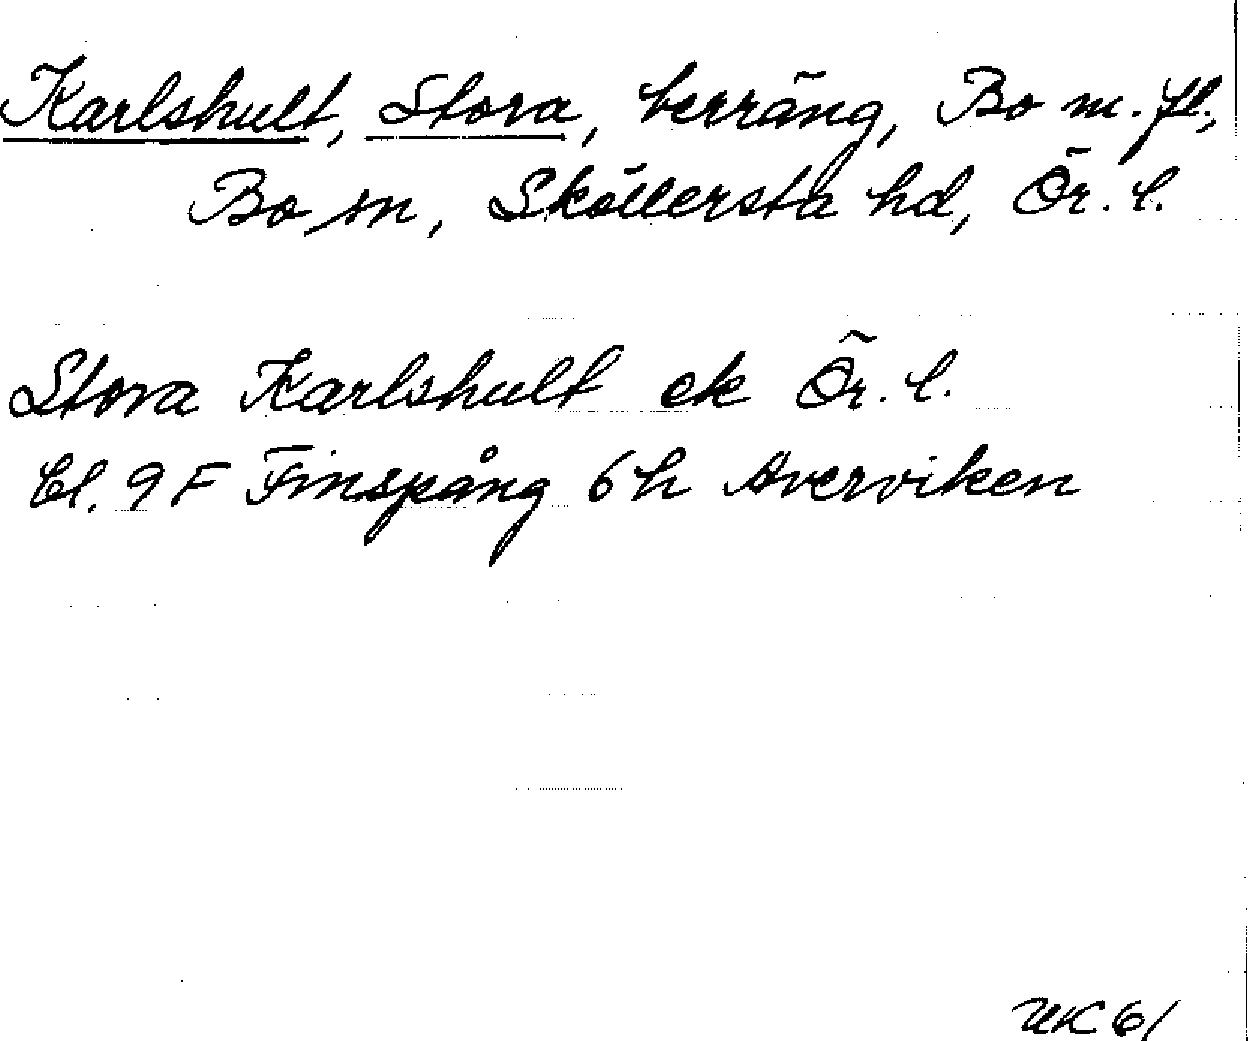 Karlshult, Stora, terräng, Bo m. fl.,
Bo sn, Sköllersta hd, Ör. l.
Stora Karlshult ek Ör. l.
bl. 9 F Finspång 6 h Avervik​en
UK 61